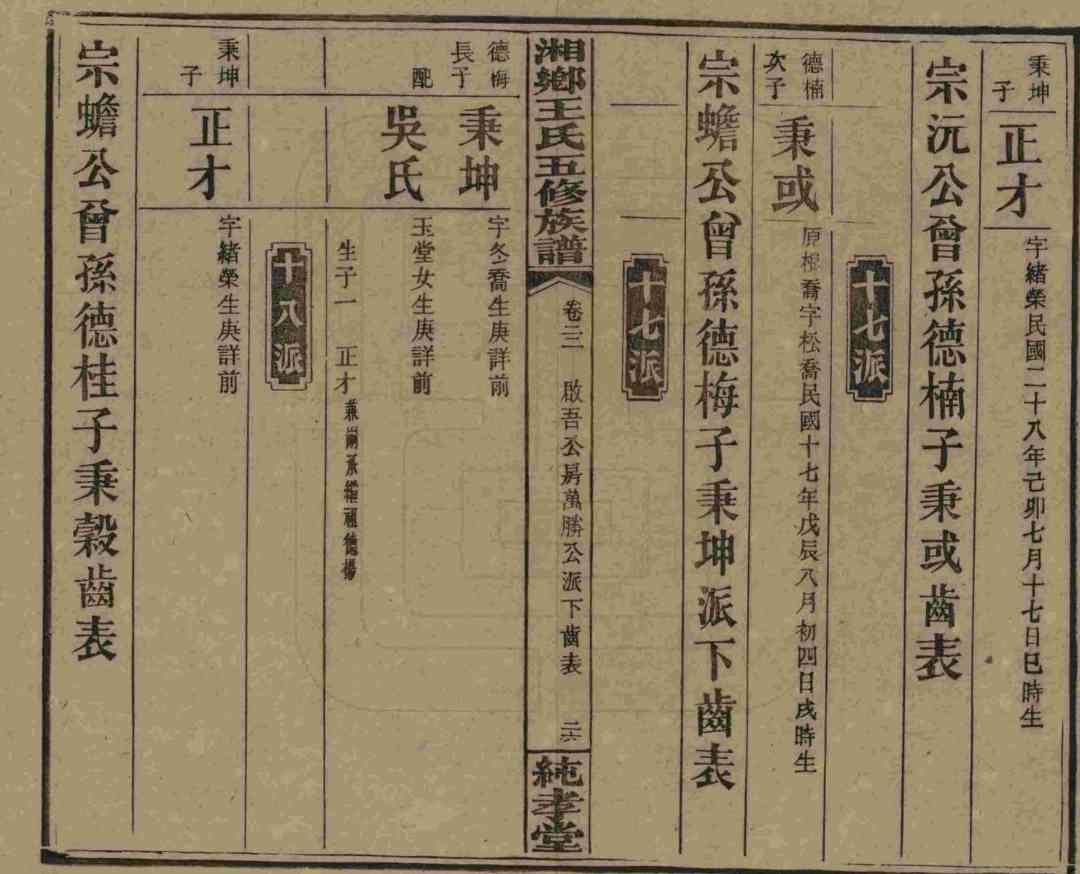 秉坤子
正才
字緒榮民國二十八年己卯七月十七日巳時生
宗沅公曾孫德楠子秉或齒表
十七派
德楠次子
秉或
原根喬字松喬民國十七年戊辰八月初四日戌時生
宗蟾公曾孫德梅子秉坤派下齒表
十七派
湘鄉王氏五修族譜
卷三二
啟吾公房萬勝公派下齒表
二六
純孝堂
德梅長子
秉坤
字冬喬生庚詳前
配
吳氏
玉堂女生庚詳前
生子一 正才兼嗣承繼祖德楊
十八派
秉坤子
正才
字緒榮生庚詳前
宗蟾公曾孫德桂子秉穀齒表